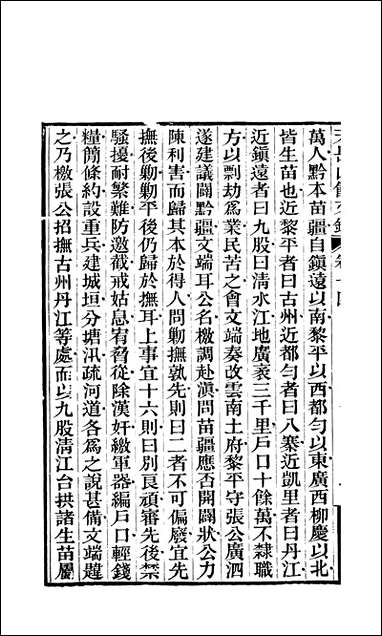 天岳山館文鈔 卷十四
萬人黔本苗疆自鎮遠以南黎平以西都勻以東廣西柳慶以北
皆生苗也近黎平者曰古州近都勻者曰八寨近凱里者曰丹江
近鎮遠者曰九股曰清水江地廣袤三千里戶口十餘萬不隸職
方以剽劫爲業民苦之會文端奏改雲南土府黎平守張公廣泗
遂建議闢黔疆文端耳公名檄調赴滇問苗疆應否開闢狀公力
陳利害而歸其本於得人問勦撫孰先則曰二者不可偏廢宜先
撫後勦勦平後仍歸於撫耳上事宜十六則曰別良頑審先後禁
騷擾耐繁難防邀截戒姑息宥脅從除漢奸繳軍器編戶口輕錢
糧簡條約設重兵建城垣分塘汛疏河道各爲之說甚備文端韙
之乃檄張公招撫古州丹江等處而以九股淸江台拱諸生苗屬